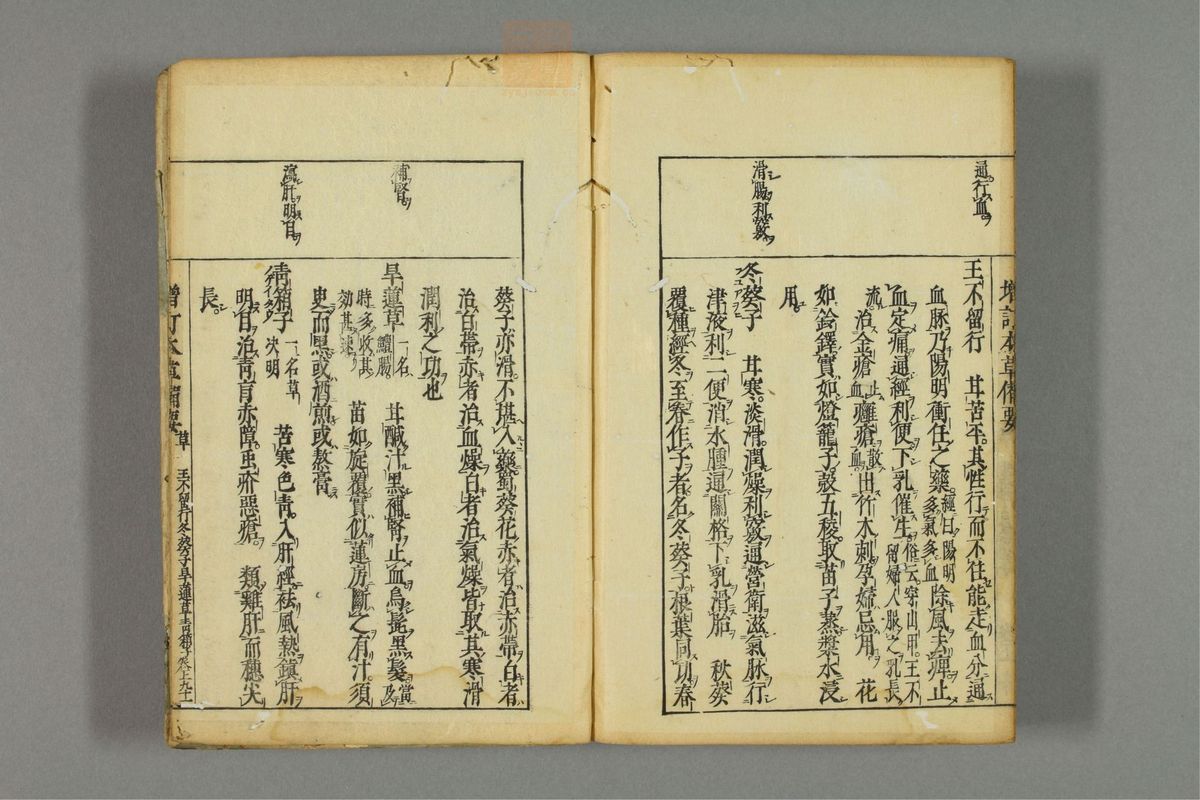 增訂本草備要
通行血
王不留行　甘苦平其性行而不住能走血分通
血脉乃陽明衝任之藥經曰陽明多氣多血除風去痺止
血定痛通經利便下乳催生俗云穿山甲王不留婦人服之乳長流
治金瘡止血癰瘡散血出竹木刺孕婦忌用　花
如鈴鐸實如燈籠子殼五稜取苗子蒸漿水浸
用
滑腸利竅
冬葵子　甘寒淡滑潤燥利竅通營衛滋氣脉行
津液利二便消水腫通關格下乳滑胎　秋葵
覆種經冬至春作子者名冬葵子根葉同功春
葵子亦滑不堪入藥蜀葵花赤者治赤帶白者
治白帶赤者治血燥白者治氣燥皆取其寒滑
潤利之功也
補腎
旱蓮草一名鱧腸　甘鹹汁黑補腎止血烏髭黑髮當及
時多收其効甚速　苗如旋覆實似蓮房斷之有汁須
史而黑或酒煎或熬膏
瀉肝明目
靑箱子一名草决明　苦寒色靑入肝經祛風熱鎭肝
明目治靑盲赤障虫疥惡瘡　類雞肝而穗尖
長
增訂本草備要　草　王不留行冬葵子旱蓮草靑箱子